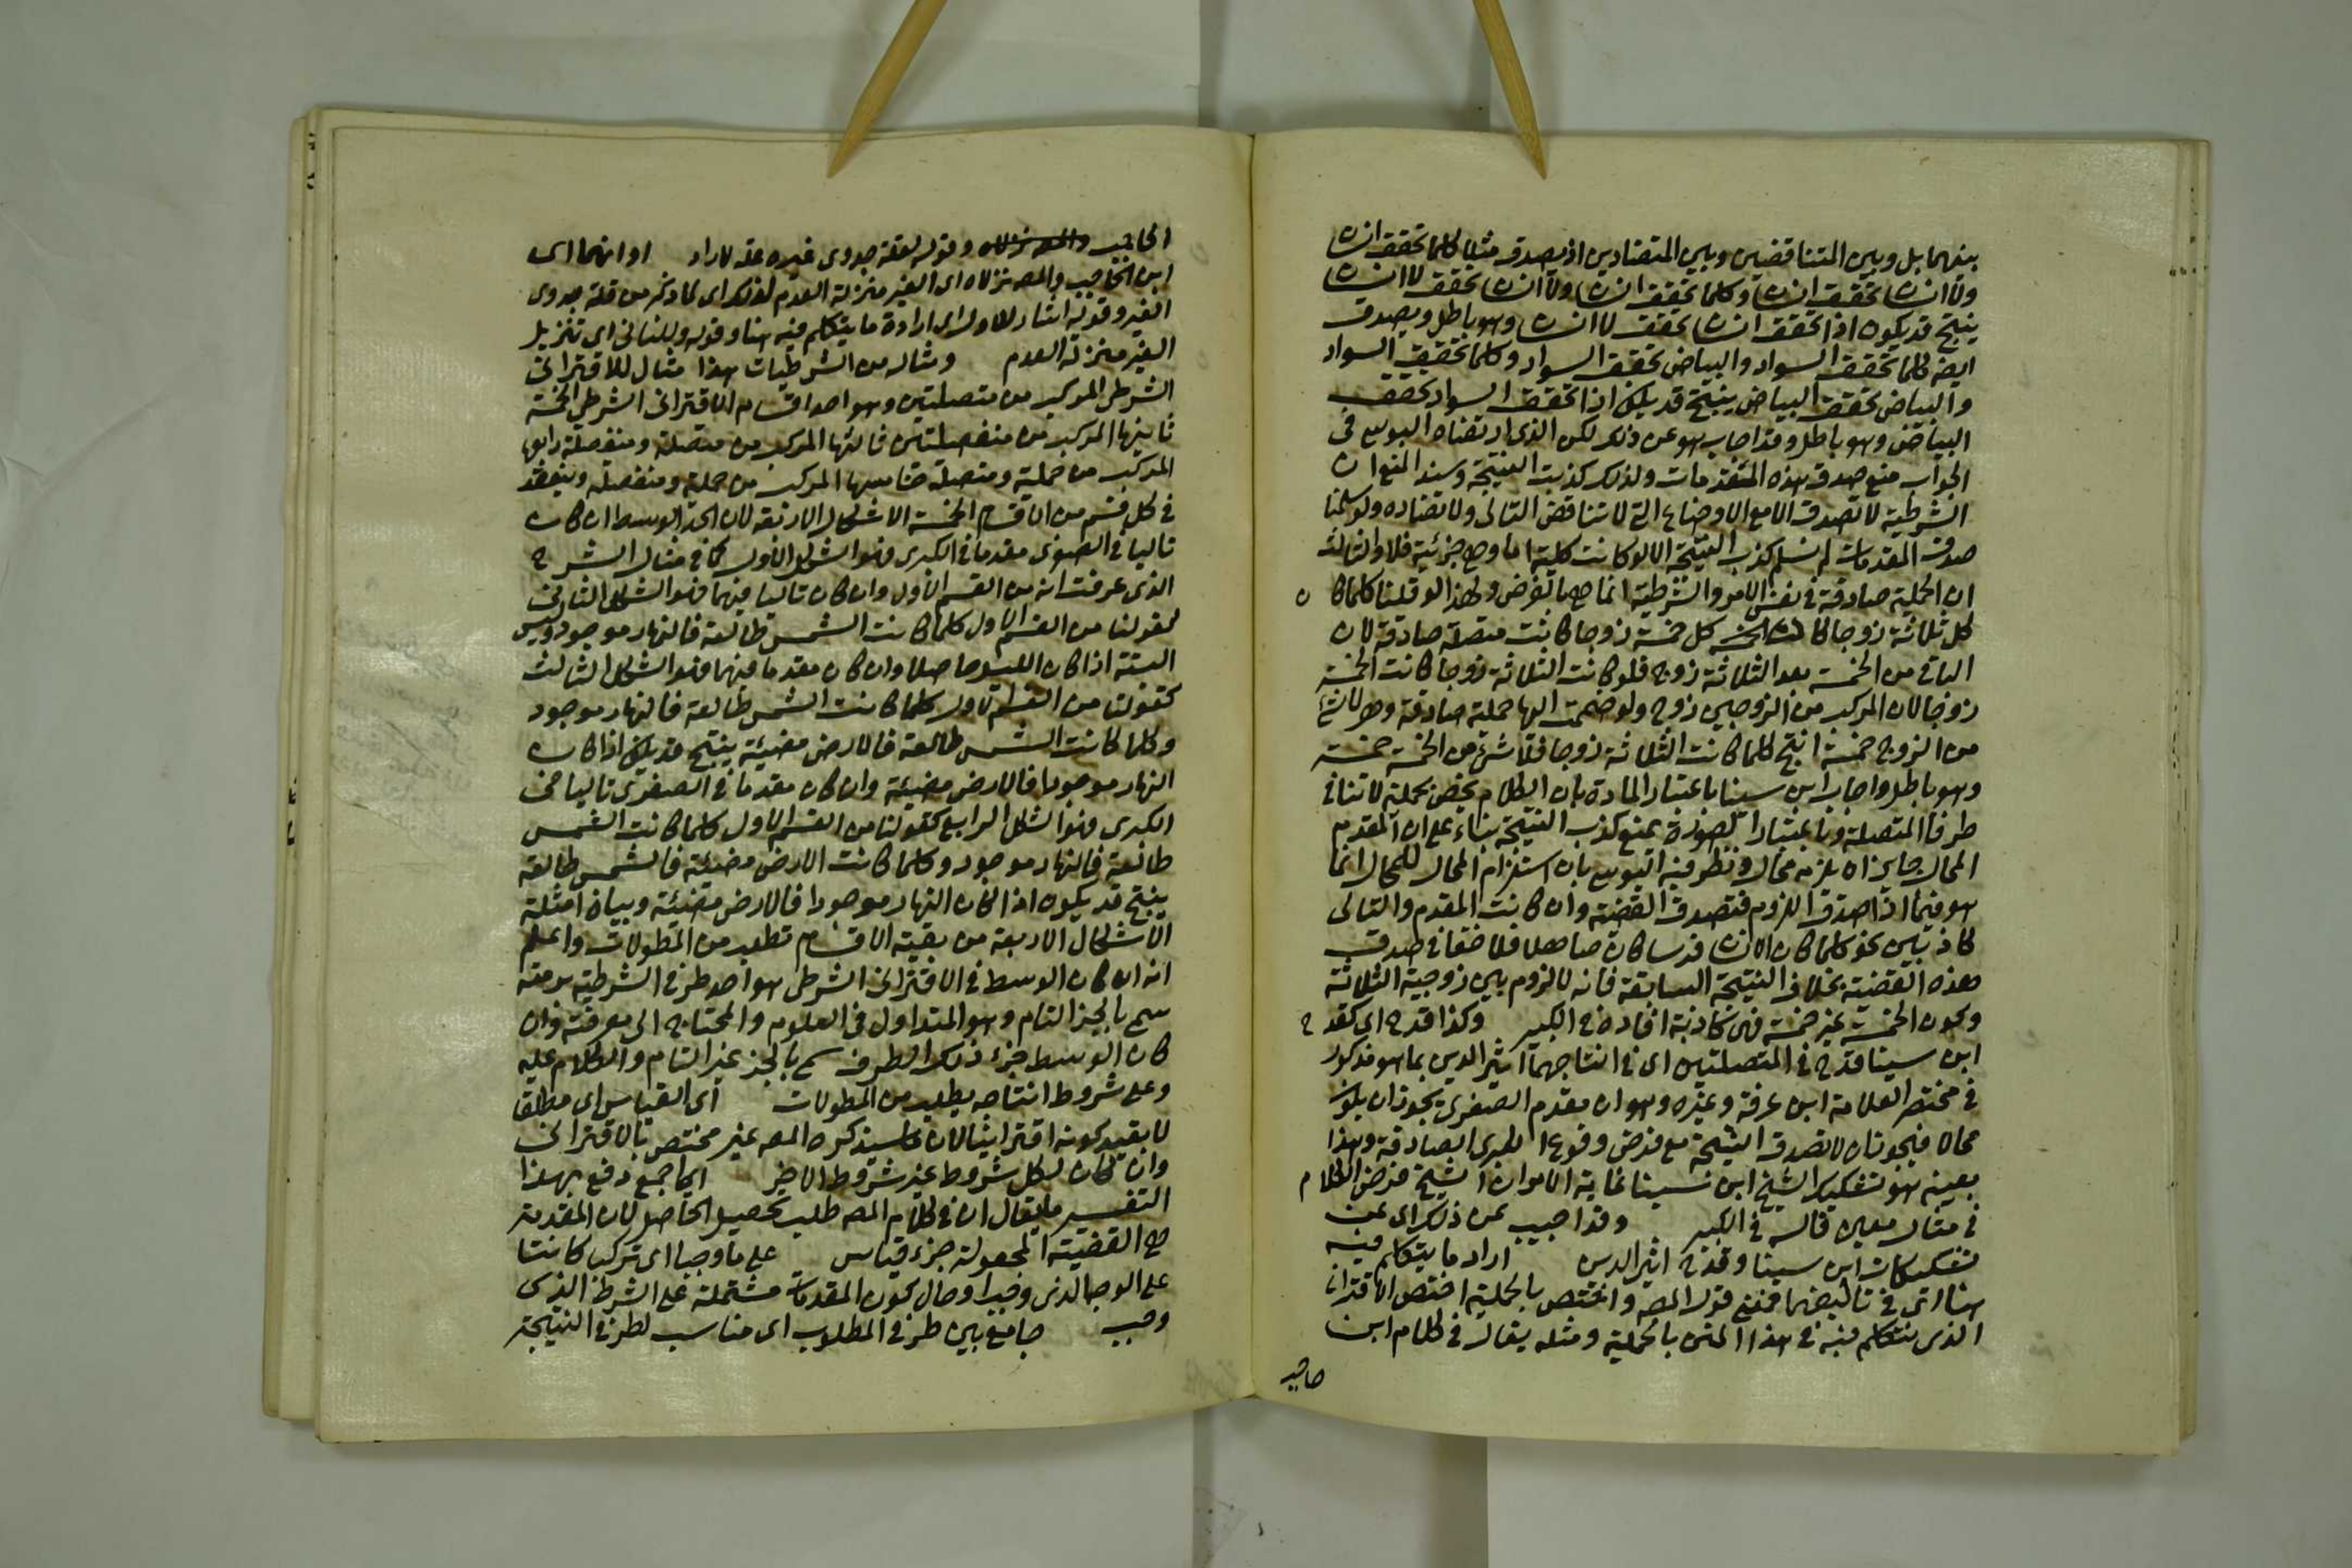 بينهما بل وبين المتناقضين وبين المتضادين اذ يصدق مثلا كلما تحقق انسان
ولا انسان تحقق انسان وكلما تحقق انسان ولا انسان تحقق لا انسان
ينتج قد يكون اذا تحقق انسان تحقق لا انسان وهو باطل ويصدق
ايضا كلما تحقق السواد والبياض تحقق السواد وكلما تحقق السواد
والبياض تحقق البياض ينتج قد يكون اذا تحقق السواد تحقق
البياض وهو باطل وقد اجاب هو عن ذلك لكن الذي ارتضاه اليوسي في
الجواب منع صدق هذه المقدمات ولذلك كذبت النتيجة وسند المنع ان
الشرطية لا تصدق الا مع الاوضاع التي لا تناقض التالي ولا تضاده ولو سلمنا
صدق المقدمات لم نسلم كذب النتيجة الا لو كانت كلية اما وهي جزئية فلا والثالث
ان الحملية صادقة في نفس الامر والشرطية انما هي بالفرض ولهذا لو قلنا كلما كان
كل ثلاثة زوجا كان كل خمسة زوجا كانت متصلة صادقة لان
الباقي من الخمسة بعد الثلاثة زوج فلو كانت الثلاثة زوجا كانت الخمسة
زوجا لان المركب من الزوجين زوج ولو ضممت اليها حملية صادقة وهي لا شيء
من الزوج خمسة انتج كلما كانت الثلاثة زوجا فلا شيء من الخمسة خمسة
وهو باطل واجاب ابن سينا باعتبار المادة بان الكلام يخص بحملية لا تنافي
طرفا المتصلة وباعتبار الصورة بمنع كذب النتيجة بناء على ان المقدم
المحال جاز ان يلزمه محال ونظر فيه اليوسي بان استلزام المحال للمحال انما
هو فيما اذا صدق اللزوم فتصدق القضية وان كانت المقدم والتالي
كاذبين نحو كلما كان الانسان فرسا كان صاهلا فلا خفا في صدق
هذه القضية بخلاف النتيجة السابقة فانه لا لزوم بين زوجية الثلاثة
وكون الخمسة غير خمسة فهي كاذبة افاده في الكبير وكذا قدح اي كقدح
ابن سينا قدح في المتصلتين اي في انتاجهما اثير الدين بما هو مذكور
في مختصر العلامة ابن عرفة وغيره وهو ان مقدم الصغرى يجوز ان يكون
محالا فيجوز ان لا تصدق النتيجة مع فرض وقوعه الكبرى الصادقة وهذا
بعينه هو تشكيك الشيخ ابن سينا غاية الامر ان الشيخ فرض الكلام
في مثال معين قاله في الكبير وقد اجيب عن ذلك اي عن
تشكيكات ابن سينا وقدح اثير الدين اراد ما يتكلم فيه
هنا اي في تاليفهما فمعنى قول المصـ واختص بالحملية اختص الاقتراني
الذي نتكلم فيه في هذا المتن بالحملية ومثله يقال في كلام ابن
حاجب
الحاجب وقوله لقلة جدوى غيره علة لاراد او انهما اي
ابن الحاجب والمصـ نزلاه اي الغير منزلة العدم لذلك اي لما ذكر من قلة جدوى
الغير وقوله اشار للاول اي ارادة ما يتكلم فيه هنا وقوله وللثاني اي تنزيل
الغير منزلة العدم ومثاله من الشرطيات هذا مثال للاقتراني
الشرطي المركب من متصلتين وهو احد اقسام الاقتراني الشرطي الخمسة
ثانيها المركب من منفصلتين ثالثها المركب من متصلة ومنفصلة رابعها
المركب من حملية ومتصلة خامسها المركب من حملية ومنفصلة وينعقد
في كل قسم من الاقسام الخمسة الاشكال الاربعة لان الحد الوسط ان كان
تاليا في الصغرى مقدما في الكبرى فهو الشكل الاول كما في مثال الشرح
الذي عرفت انه من القسم الاول وان كان تاليا فيهما فهو الشكل الثاني
كقولنا من القسم الاول كلما كانت الشمس طالعة فالنهار موجود وليس
البتة اذا كان الليل حاصلا وان كان مقدما فيهما فهو الشكل الثالث
كقولنا من القسم الاول كلما كانت الشمس طالعة فالنهار موجود
وكلما كانت الشمس طالعة فالارض مضيئة ينتج قد يكون اذا كان
النهار موجودا فالارض مضيئة وان كان مقدما في الصغرى تاليا في
الكبرى فهو الشكل الرابع كقولنا من القسم الاول كلما كانت الشمس
طالعة فالنهار موجود وكلما كانت الارض مضيئة فالشمس طالعة
ينتج قد يكون اذا كان النهار موجودا فالارض مضيئة وبيان امثلة
الاشكال الاربعة من بقية الاقسام تطلب من المطولات واعلم
انه ان كان الوسط في الاقتراني الشرطي هو احد طرفي الشرطية برمته
سمي بالجزء التام وهو المتداول في العلوم والمحتاج الى معرفته وان
كان الوسط جزء ذلك الطرف سمي بالجزء غير التام والكلام عليه
وعلى شروط انتاجه يطلب من المطولات اي القياس اي مطلقا
لا بقيد كونه اقترانيا لان ما سيذكره المصـ غير مختص بالاقتراني
وان كان لكل شروط غير شروط الاخر اي اجمع دفع بهذا
التفسير ما يقال ان في كلام المصـ طلب تحصيل الحاصل لان المقدمة
هي القضية المجعولة جزء قياس على ما وجبا اي تركب كائنا
على الوجه الذي وجب او حال كون المقدمات مشتملة على الشرط الذي
وجب جامع بين طرفي المطلوب اي مناسب لطرفي النتيجة